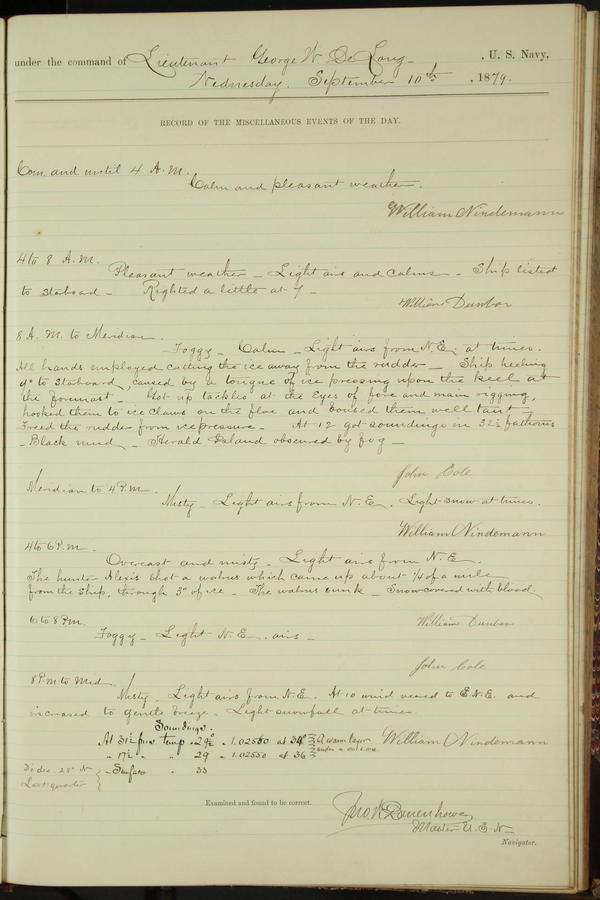 under the command of Lieutenant George W De Long , U. S. Navy,
Wednesday, September 10th , 1879.
RECORD OF THE MISCELLANEOUS EVENTS OF THE DAY.
Com. and until 4 A.M.
Calm and pleasant weather.
William Nindemann
4 to 8 A.M.
Pleasant weather - Light airs and calms - Ship listed
to staboad - Righted a little at 7 -
William Dunbar
8 A.M. to Meridian.
Foggy - Calm - Light airs from N.E. at times.
All hands employed cutting the ice away from the rudder - Ship heeling
9° to Staboard, caused by a tongue of ice pressing upon the keel at
the foremast - Got up tackles at the Eyes of fore and main rigging,
hooked them to ice claws on the floe and boused them well taut
Freed the rudder from ice pressure - At 12 got soundings in 32½ fathoms
- Black mud - Herald Island obscured by fog -
John Cole
Meridian to 4 P.M.
Misty - Light airs from N.E. Light snow at times.
William Nindemann
4 to 6 P.M.
Overcast and misty - Light airs from N.E.
The hunter Alexis shot a walrus which came up about ¼ of a mile
from the ship, through 3" of ice - The walrus sunk - Snow covered with blood.
6 to 8 P.M.
William Dunbar
Foggy - Light N.E. airs -
John Cole
8 P.M. to Mid.
Misty - Light airs from N.E. At 10 wind veered to E.N.E. and
increased to gentle breeze - Light snowfall at times.
Soundings.
At 31½ fms. temp 29½° 1.02550 at 34° A warm layer
" 17½ " " 29 " 1.02550 at 36 under a cold one
William Nindemann
" Surface " 33
Last quarter
Examined and found to be correct.
Jno. W. Danenhower
Master U.S.N.
Navigator.